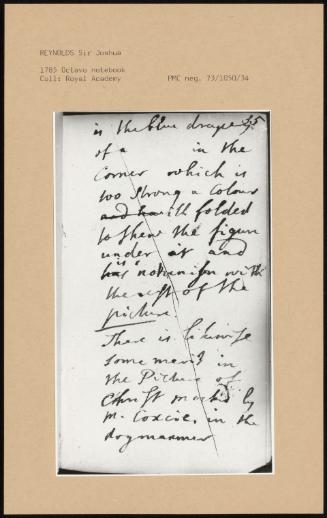 REYNOLDS Sir Joshua
1785 Octavo notebook
Coll: Royal Academy
PMC neg. 73/1050/34
35
is the blue drapery
of a in the
Corner which is
too strong a Colour
and ha ill folded
to shew the figure
under it and
is not unison with
the rest of the
picture.
There is likewise
some merit in
the Picture of
Christ by
M. Coxcie, in the